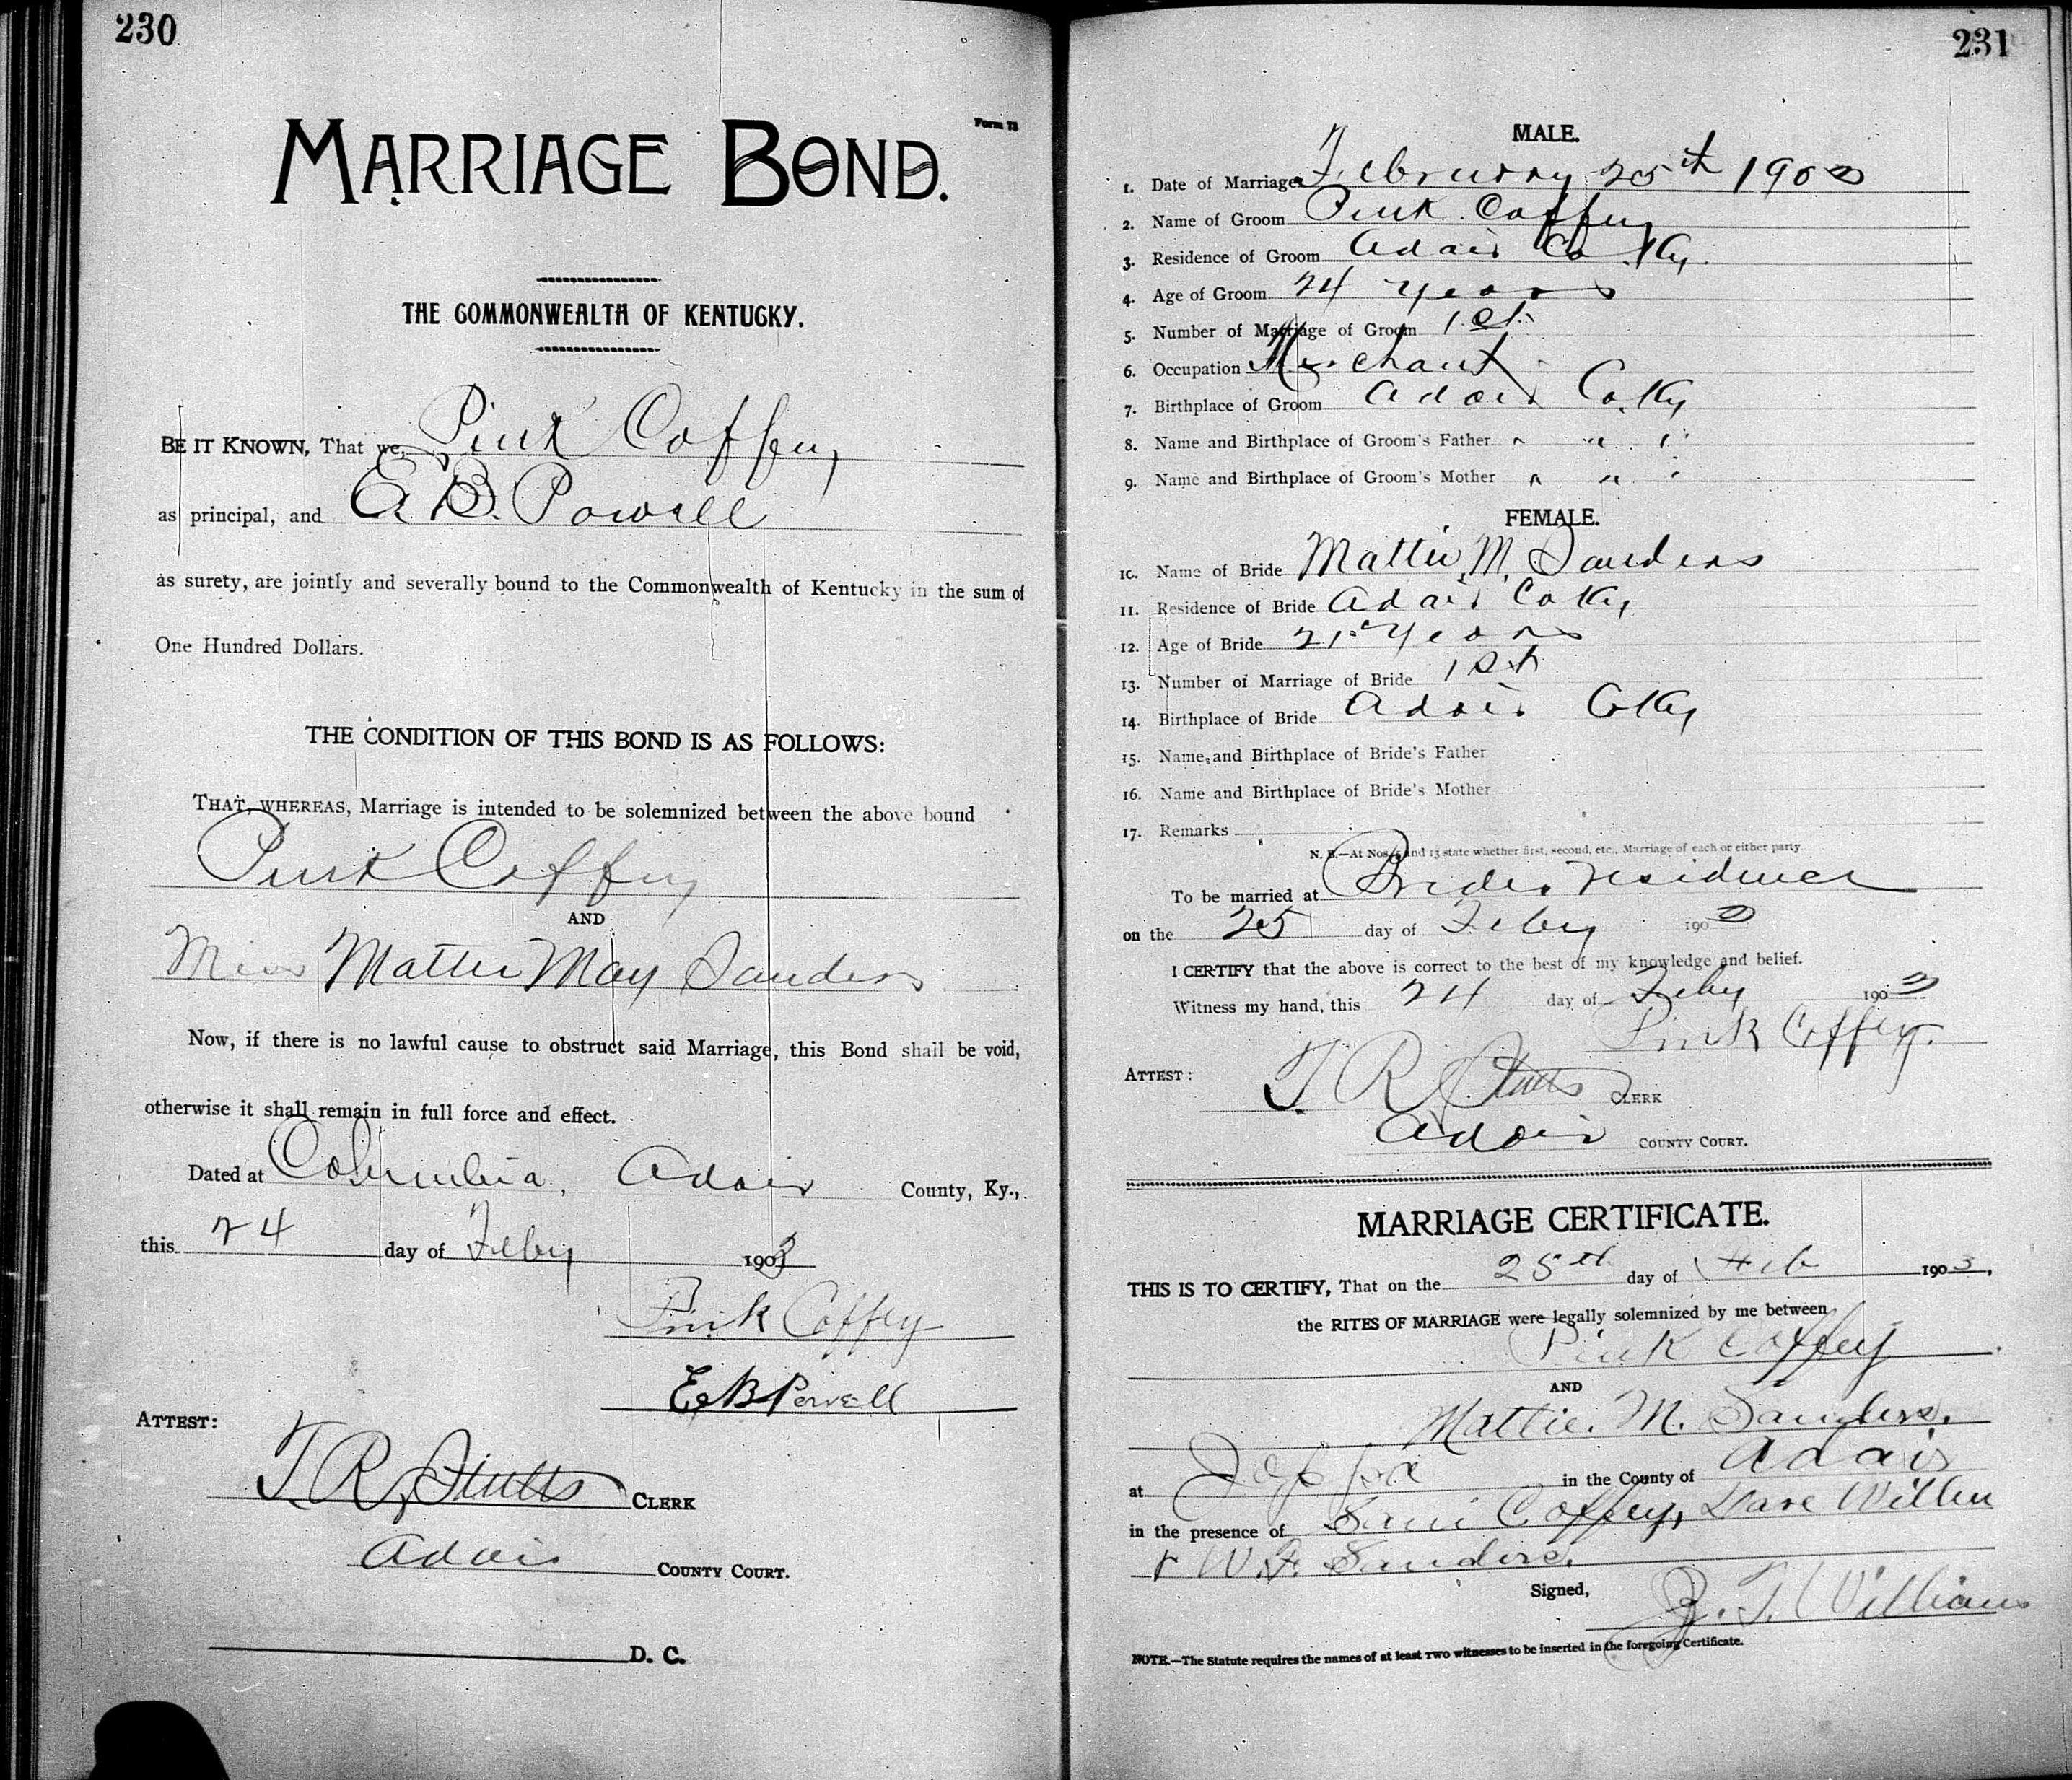 230
Form 73
MARRIAGE BOND.
THE COMMONWEALTH OF KENTUCKY.
BE IT KNOWN, That we, Pink Coffey
as principal, and E. B. Powell
as surety, are jointly and severally bound to the Commonwealth of Kentucky in the sum of
One Hundred Dollars.
THE CONDITION OF THIS BOND IS AS FOLLOWS:
THAT, WHEREAS, Marriage is intended to be solemnized between the above bound
Pink Coffey
AND
Miss Mattie May Sanders
Now, if there is no lawful cause to obstruct said Marriage, this Bond shall be void,
otherwise it shall remain in full force and effect.
Dated at Columbia, Adair County, Ky.,
this 24 day of Feby 1903
Pink Coffey
E B Powell
ATTEST:
T. R. Stults CLERK
Adair COUNTY COURT.
D. C.
231
MALE.
1. Date of Marriage February 25th 1903
2. Name of Groom Pink Coffey
3. Residence of Groom Adair Co. Ky.
4. Age of Groom 24 years
5. Number of Marriage of Groom 1st
6. Occupation Merchant
7. Birthplace of Groom Adair Co. Ky
8. Name and Birthplace of Groom's Father " " "
9. Name and Birthplace of Groom's Mother " " "
FEMALE.
10. Name of Bride Mattie M. Sanders
11. Residence of Bride Adair Co Ky,
12. Age of Bride 21 years
13. Number of Marriage of Bride 1st
14. Birthplace of Bride Adair Co Ky
15. Name and Birthplace of Bride's Father
16. Name and Birthplace of Bride's Mother
17. Remarks
N. B.—At Nos. 5 and 13 state whether first, second, etc., Marriage of each or either party.
To be married at Brides residence
on the 25 day of Feby 1903
I CERTIFY that the above is correct to the best of my knowledge and belief.
Witness my hand, this 24 day of Feby 1903
Pink Coffey.
ATTEST:
T. R. Stults CLERK
Adair COUNTY COURT.
MARRIAGE CERTIFICATE.
THIS IS TO CERTIFY, That on the 25th day of Feb 1903,
the RITES OF MARRIAGE were legally solemnized by me between
Pink Coffey
AND
Mattie. M. Sanders.
at in the County of Adair
in the presence of Sam Coffey, Dave
& W. F. Sanders.
Signed, Z. T. Williams
NOTE.—The Statute requires the names of at least two witnesses to be inserted in the foregoing Certificate.